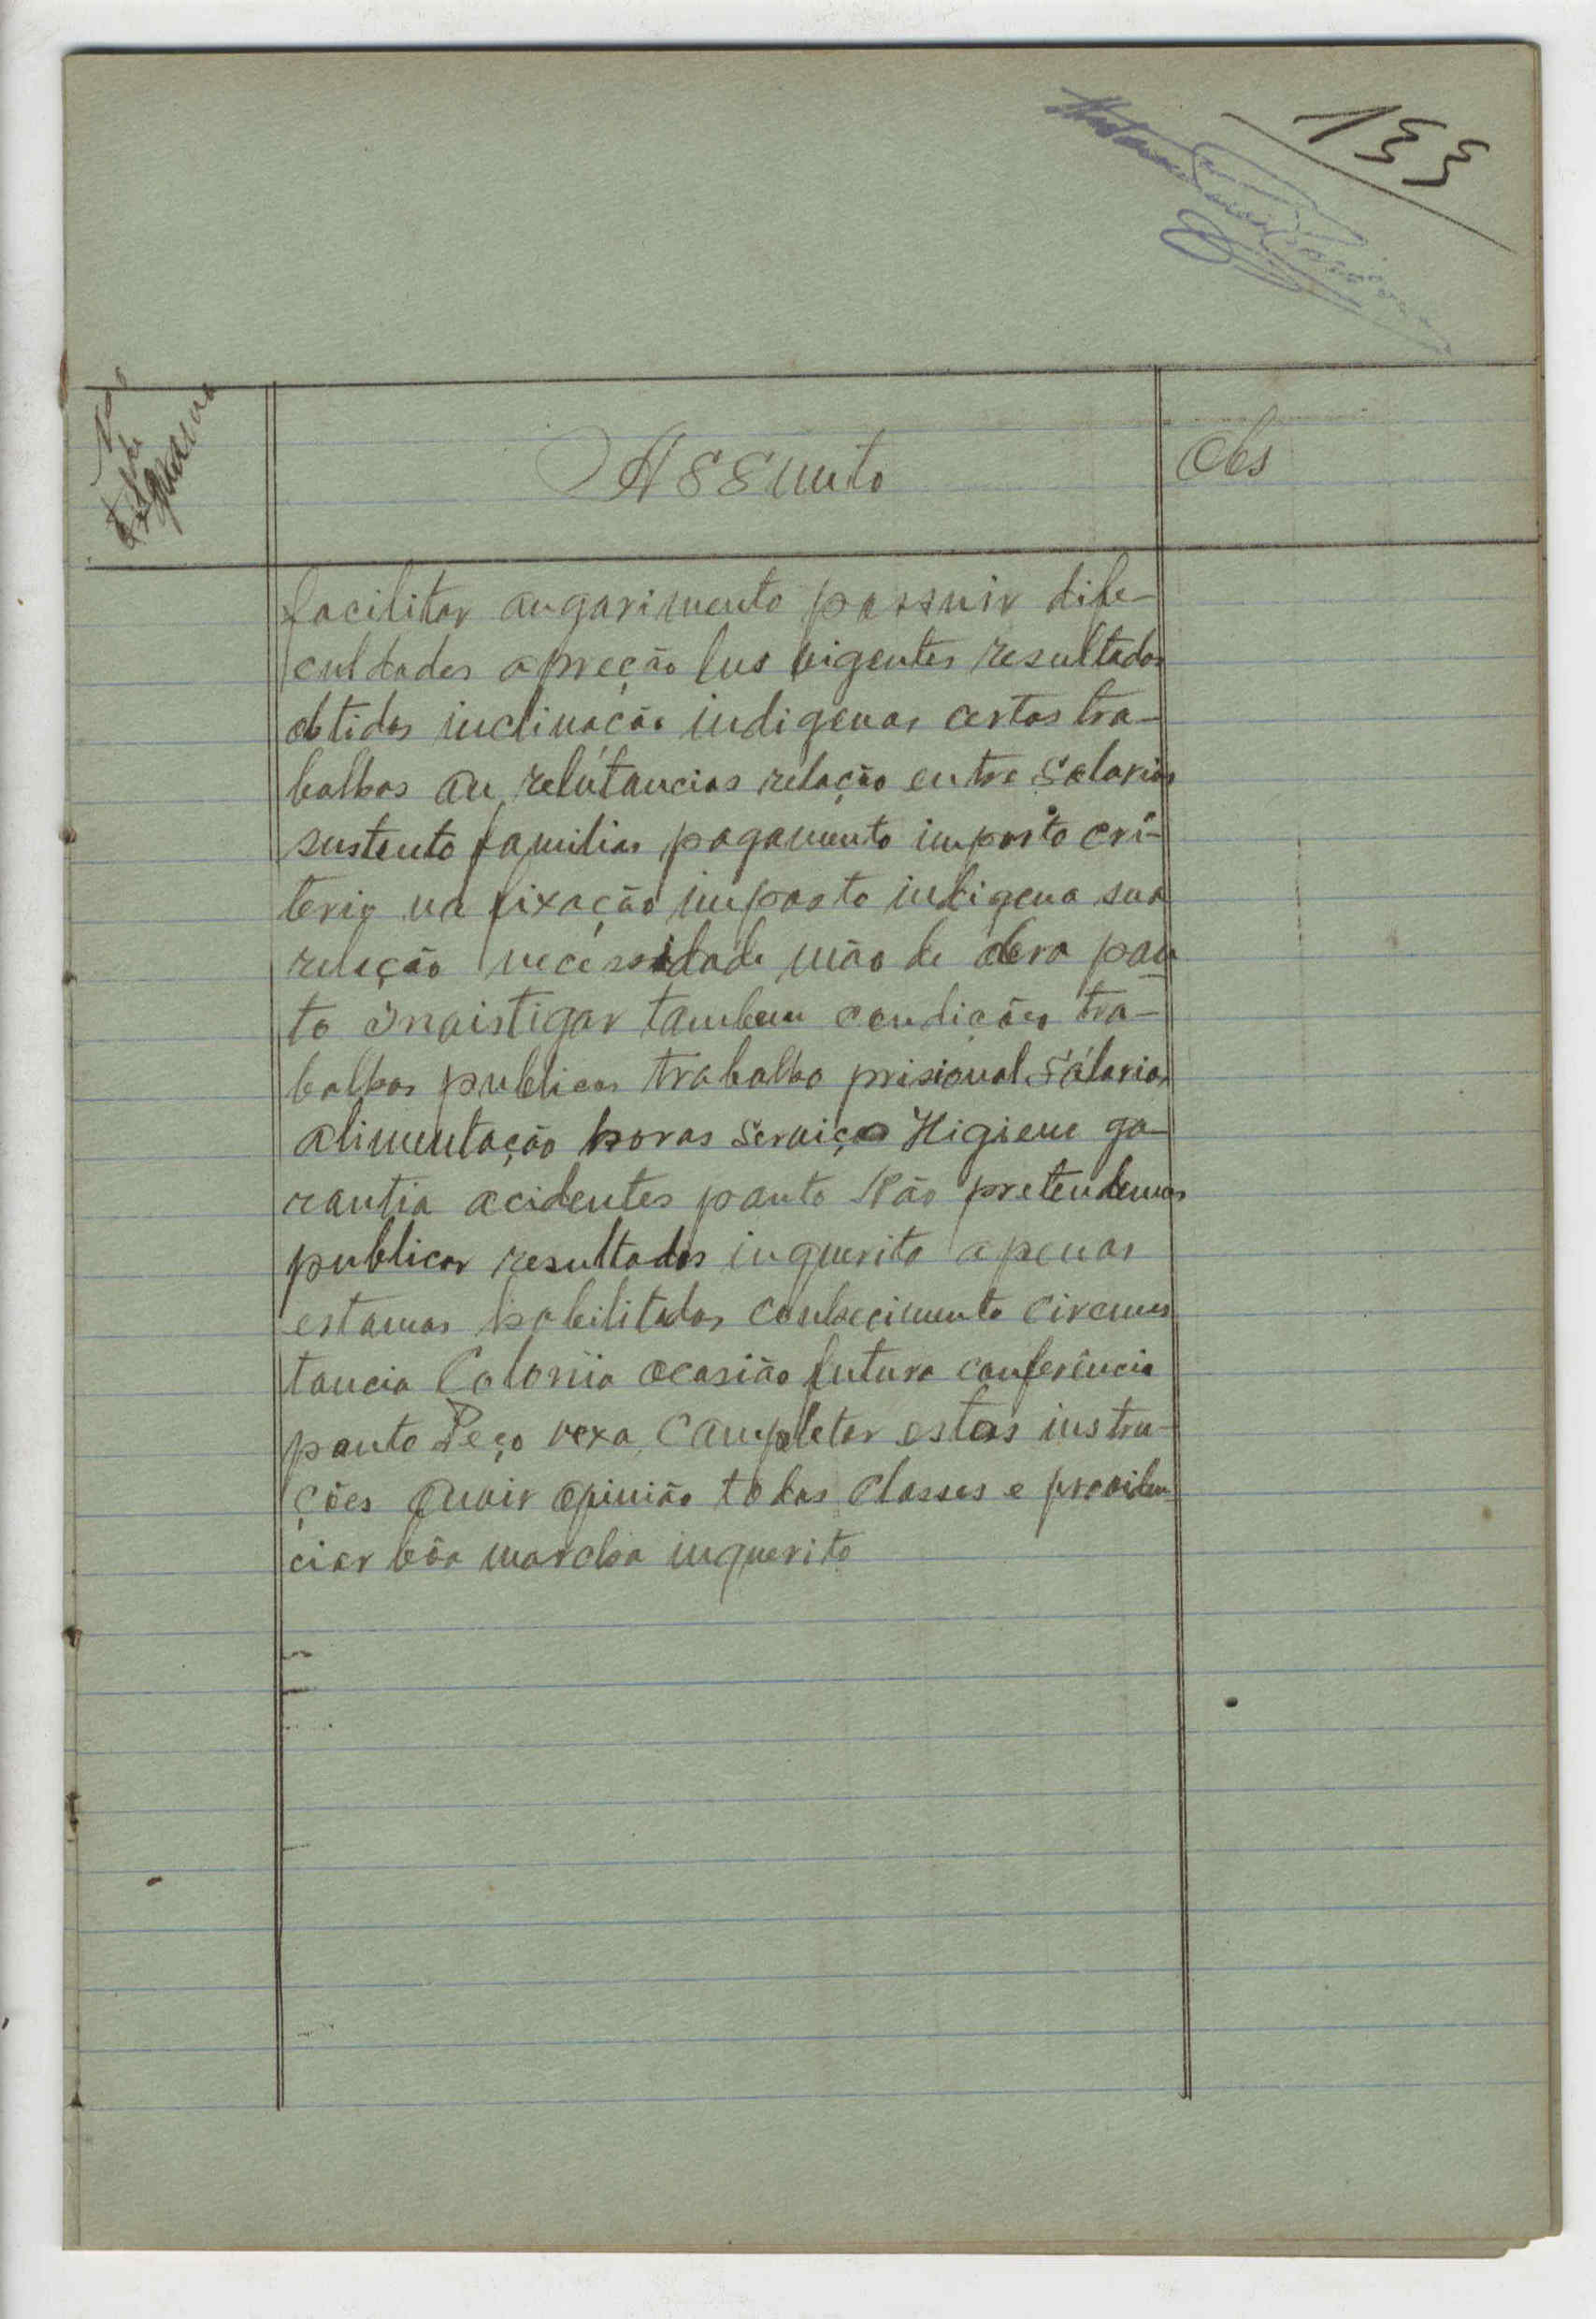 133
No do telegrama
Assunto
Obs
facilitar angarimento possuir difi-
culdades apreção lus vigentes resultados
obtidos inclinação indigenas certos tra-
balhos ou relútancias relação entre salarios
sustento familias pagamento imposto cri-
terio na fixação imposto indigena sua
relação necéssidade mão de obra pon
to Invistigar tambem condições tra-
balhos publicos trabalho prisional sálarios
alimentação horas serviço Higiene ga-
rantia acidentes ponto Não pretendemos
publicar resultados inquerito apenas
estamos habilitados conhecimento circuns
tancia Colonia ocasião futura conferência
ponto Peço vexa completar estas instru-
ções ouvir opinião todas classes e providen-
ciar bôa marcha inquerito